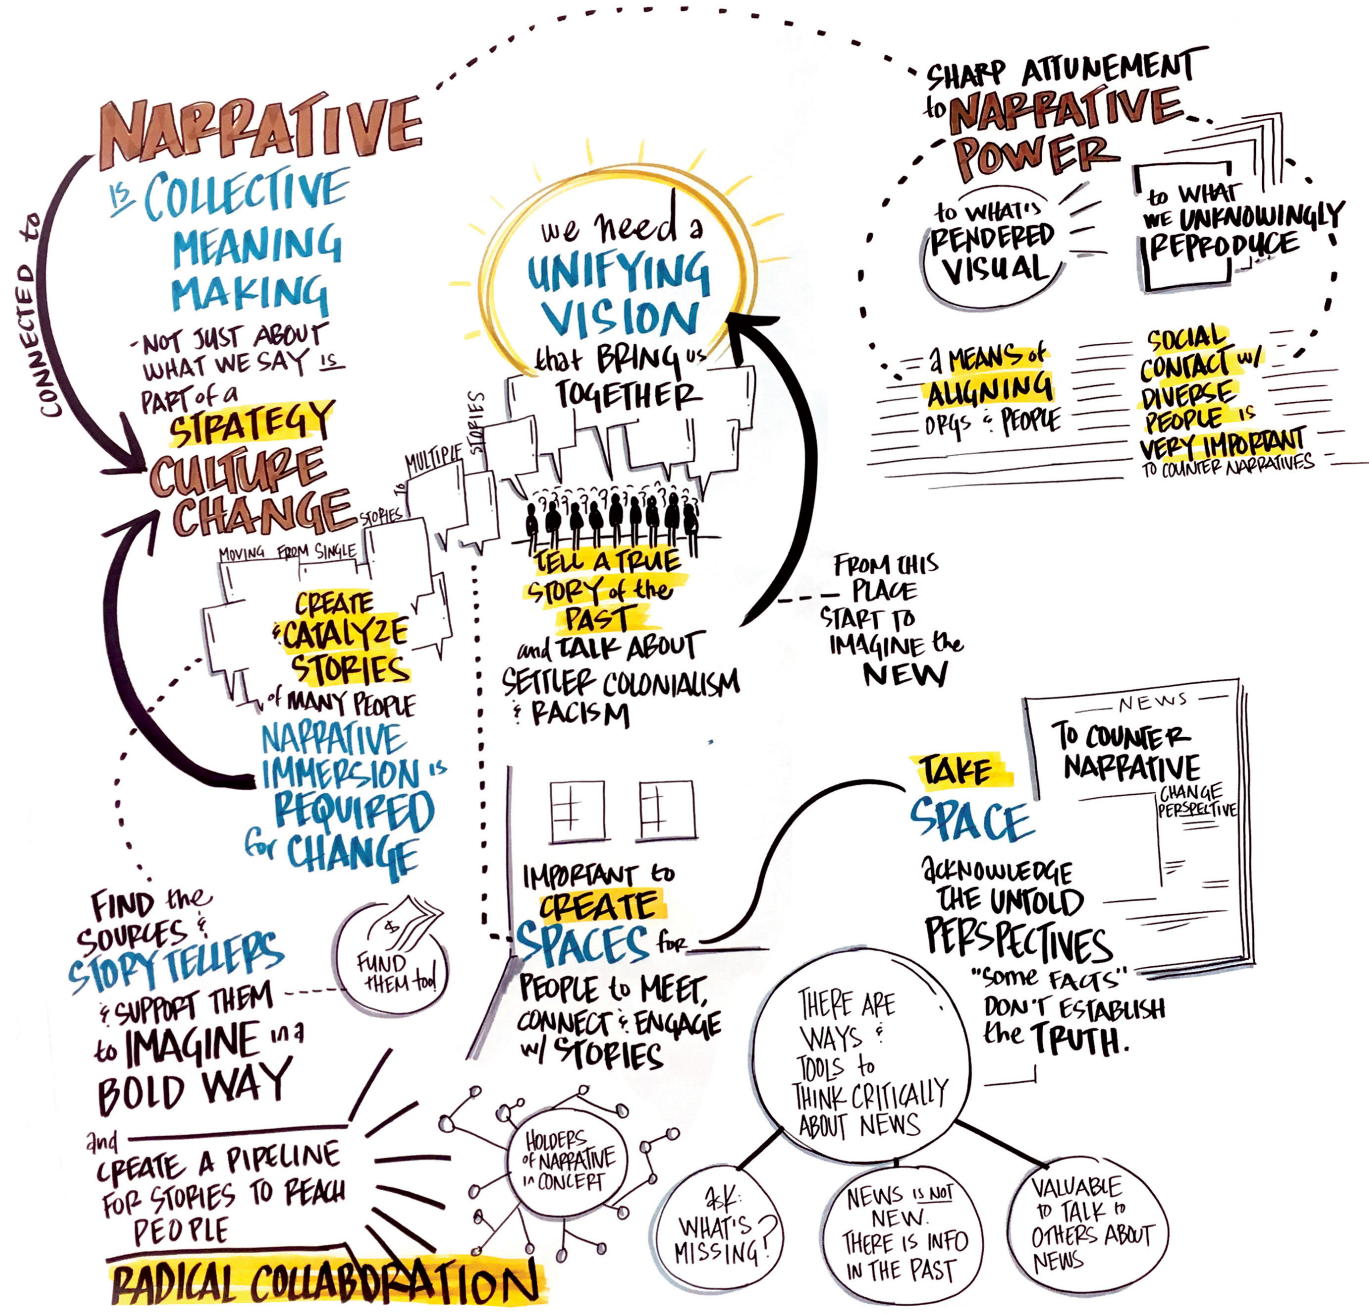 NARRATIVE
is COLLECTIVE
MEANING
MAKING
- NOT JUST ABOUT
WHAT WE SAY is
PART of a
STRATEGY
CONNECTED to
CULTURE
CHANGE
MOVING FROM SINGLE
STORIES
TO
MULTIPLE
STORIES
CREATE
& CATALYZE
STORIES
of MANY PEOPLE
NARRATIVE
IMMERSION is
REQUIRED
for CHANGE
FIND the
SOURCES &
STORYTELLERS
& SUPPORT THEM
to IMAGINE in a
BOLD WAY
$
FUND
THEM too!
and
CREATE A PIPELINE
FOR STORIES TO REACH
PEOPLE
RADICAL COLLABORATION
HOLDERS
of NARRATIVE
in CONCERT
we need a
UNIFYING
VISION
that BRING US
TOGETHER
TELL A TRUE
STORY of the
PAST
and TALK ABOUT
SETTLER COLONIALISM
& RACISM
FROM THIS
PLACE
START TO
IMAGINE the
NEW
IMPORTANT to
CREATE
SPACES for
PEOPLE to MEET,
CONNECT & ENGAGE
w/ STORIES
SHARP ATTUNEMENT
to NARRATIVE
POWER
to WHAT'S
RENDERED
VISUAL
to WHAT
WE UNKNOWINGLY
REPRODUCE
a MEANS of
ALIGNING
ORGS & PEOPLE
SOCIAL
CONTACT w/
DIVERSE
PEOPLE is
VERY IMPORTANT
TO COUNTER NARRATIVES
TAKE
SPACE
NEWS
TO COUNTER
NARRATIVE
CHANGE
PERSPECTIVE
acKNOWLEDGE
THE UNTOLD
PERSPECTIVES
"SOME FACTS"
DON'T ESTABLISH
the TRUTH.
THERE ARE
WAYS &
TOOLS to
THINK CRITICALLY
ABOUT NEWS
ask:
WHAT'S
MISSING?
NEWS is NOT
NEW.
THERE IS INFO
IN THE PAST
VALUABLE
to TALK to
OTHERS ABOUT
NEWS